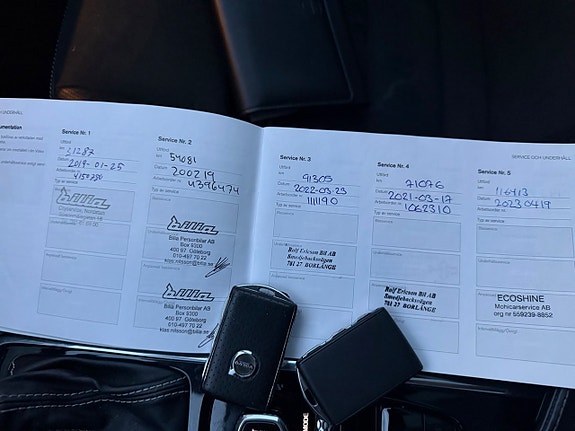 SERVICE OCH UNDERHÅLL
Service Nr. 1
Utförd
Datum
2019-01-25
Arbetsorder nr.
Typ av service
Service Nr. 2
Utförd
km
54081
Datum
200219
Arbetsorder nr.
4396474
Typ av service
bilia
Bilia Personbilar AB
Box 9300
400 97 Göteborg
010-497 70 22
kiss.nilsson@bilia.se
bilia
Bilia Personbilar AB
Box 9300
400 97 Göteborg
010-497 70 22
kiss.nilsson@bilia.se
Service Nr. 3
Utförd
km
91305
Datum
2022-03-23
Arbetsorder nr.
111190
Typ av service
Rolf Ericson Bil AB
Smedjebacksvägen
781 27 BORLÄNGE
Service Nr. 4
Utförd
km
71076
Datum
2021-03-17
Arbetsorder nr.
1062310
Typ av service
Rolf Ericson Bil AB
Smedjebacksvägen
781 27 BORLÄNGE
SERVICE OCH UNDERHÅLL
Service Nr. 5
Utförd
km
116413
Datum
20230419
Arbetsorder nr.
Typ av service
ECOSHINE
Mohicarservice AB
org nr 559239-8852
VOLVO
MODE